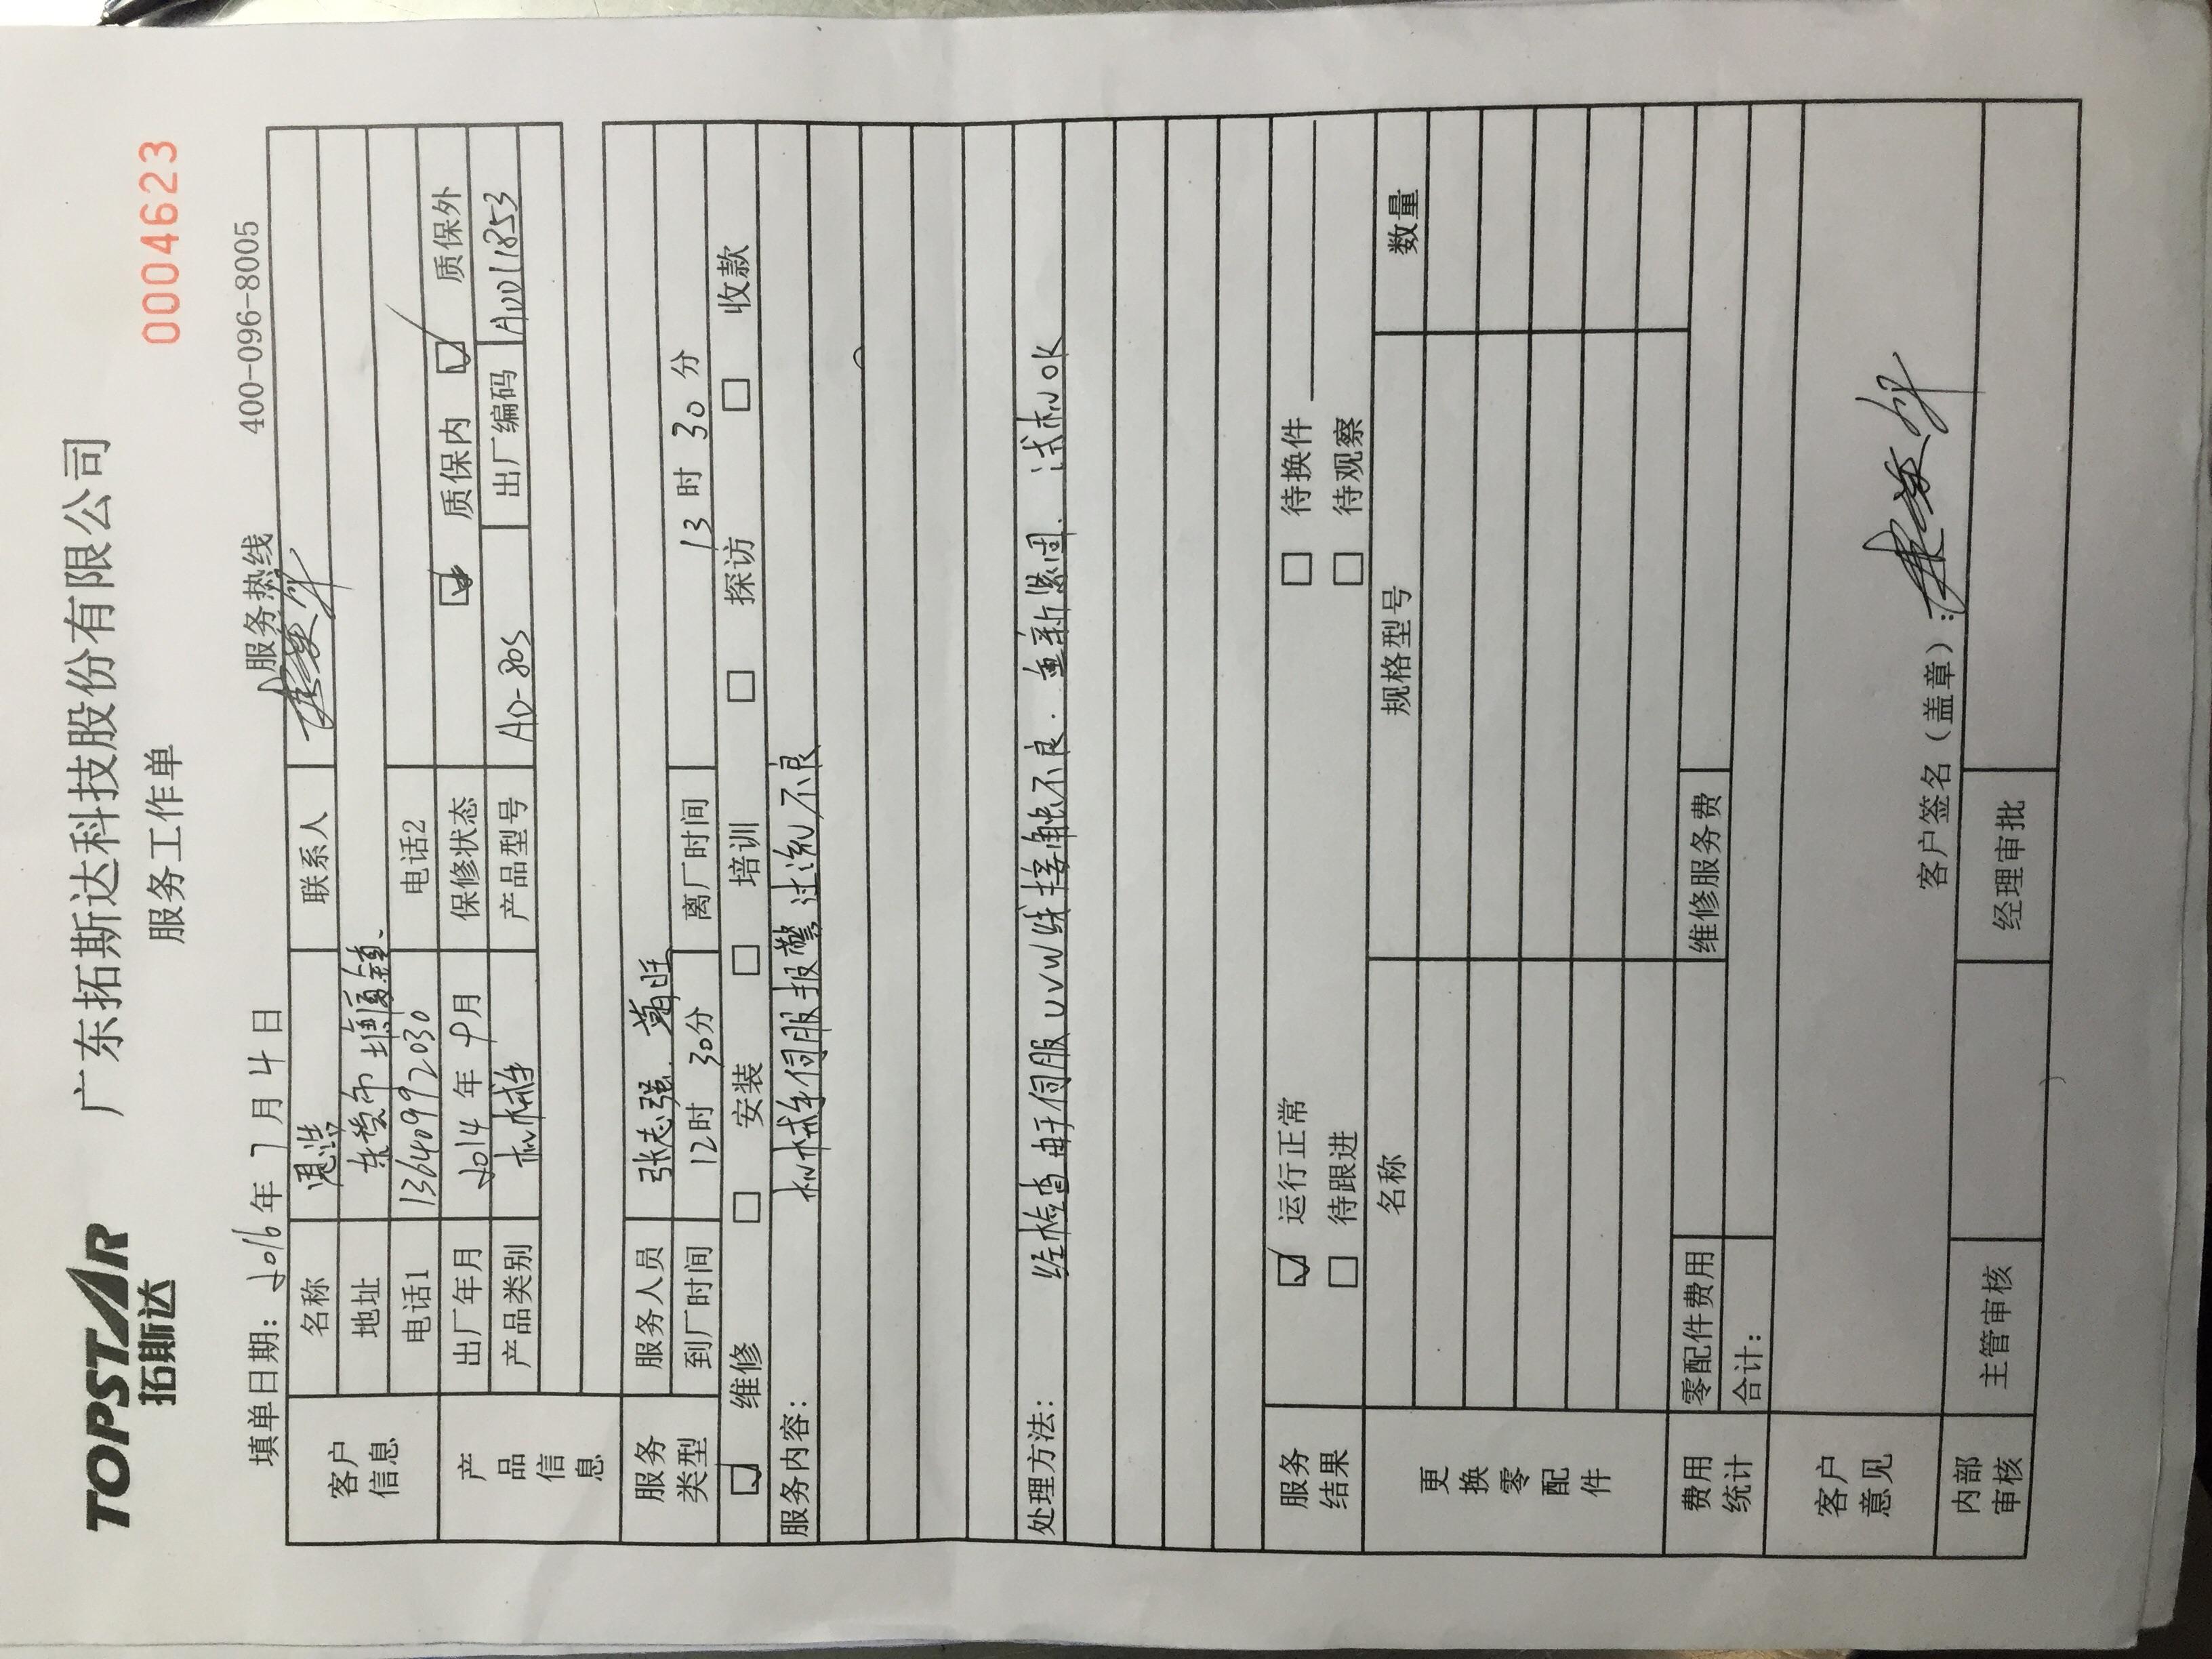 TOPSTAR
拓斯达
广东拓斯达科技股份有限公司
服务工作单
0004623
填单日期：2016年7月4日 服务热线 400-096-8005
客户信息
名称 联系人
地址 东莞市塘厦镇、
电话1 13640992030 电话2
产品信息
出厂年月 2014年9月 保修状态 ☑ 质保内 ☑ 质保外
产品类别 机械手 产品型号 AD-80S 出厂编码 A00L1853
服务类型
服务人员 张志强
到厂时间 12时30分 离厂时间 13时30分
☑ 维修 □ 安装 □ 培训 □ 探访 □ 收款
服务内容： 机械手伺服报警过流不良
处理方法： 经检查 伺服UVW线接触不良. 重新紧固. 试机OK
服务结果
☑ 运行正常 □ 待换件
□ 待跟进 □ 待观察
更换零配件
名称 规格型号 数量
费用统计
零配件费用 维修服务费
合计：
客户意见
客户签名（盖章）：
内部审核
主管审核 经理审批